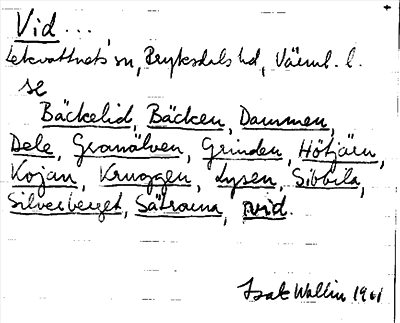 Vid...,
Lekvattnets sn, Fryksdals hd, Värml. l.
se
Bäckelid, Bäcken, Dammen,
Dele, Granälven, Grinden, Hötjärn,
Kojan, Kruggen, Lysen, Sibbila,
Silverberget, Sätrarna, vid.
Isak Wallin 1961